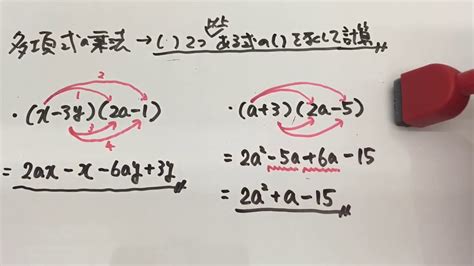 多項式の乗法 → ( ) 2つ以上ある式の( )をなくして計算
2
1
・(x-3y)(2a-1)
3
4
= 2ax - x - 6ay + 3y
・(a+3)(2a-5)
= 2a² - 5a + 6a - 15
= 2a² + a - 15